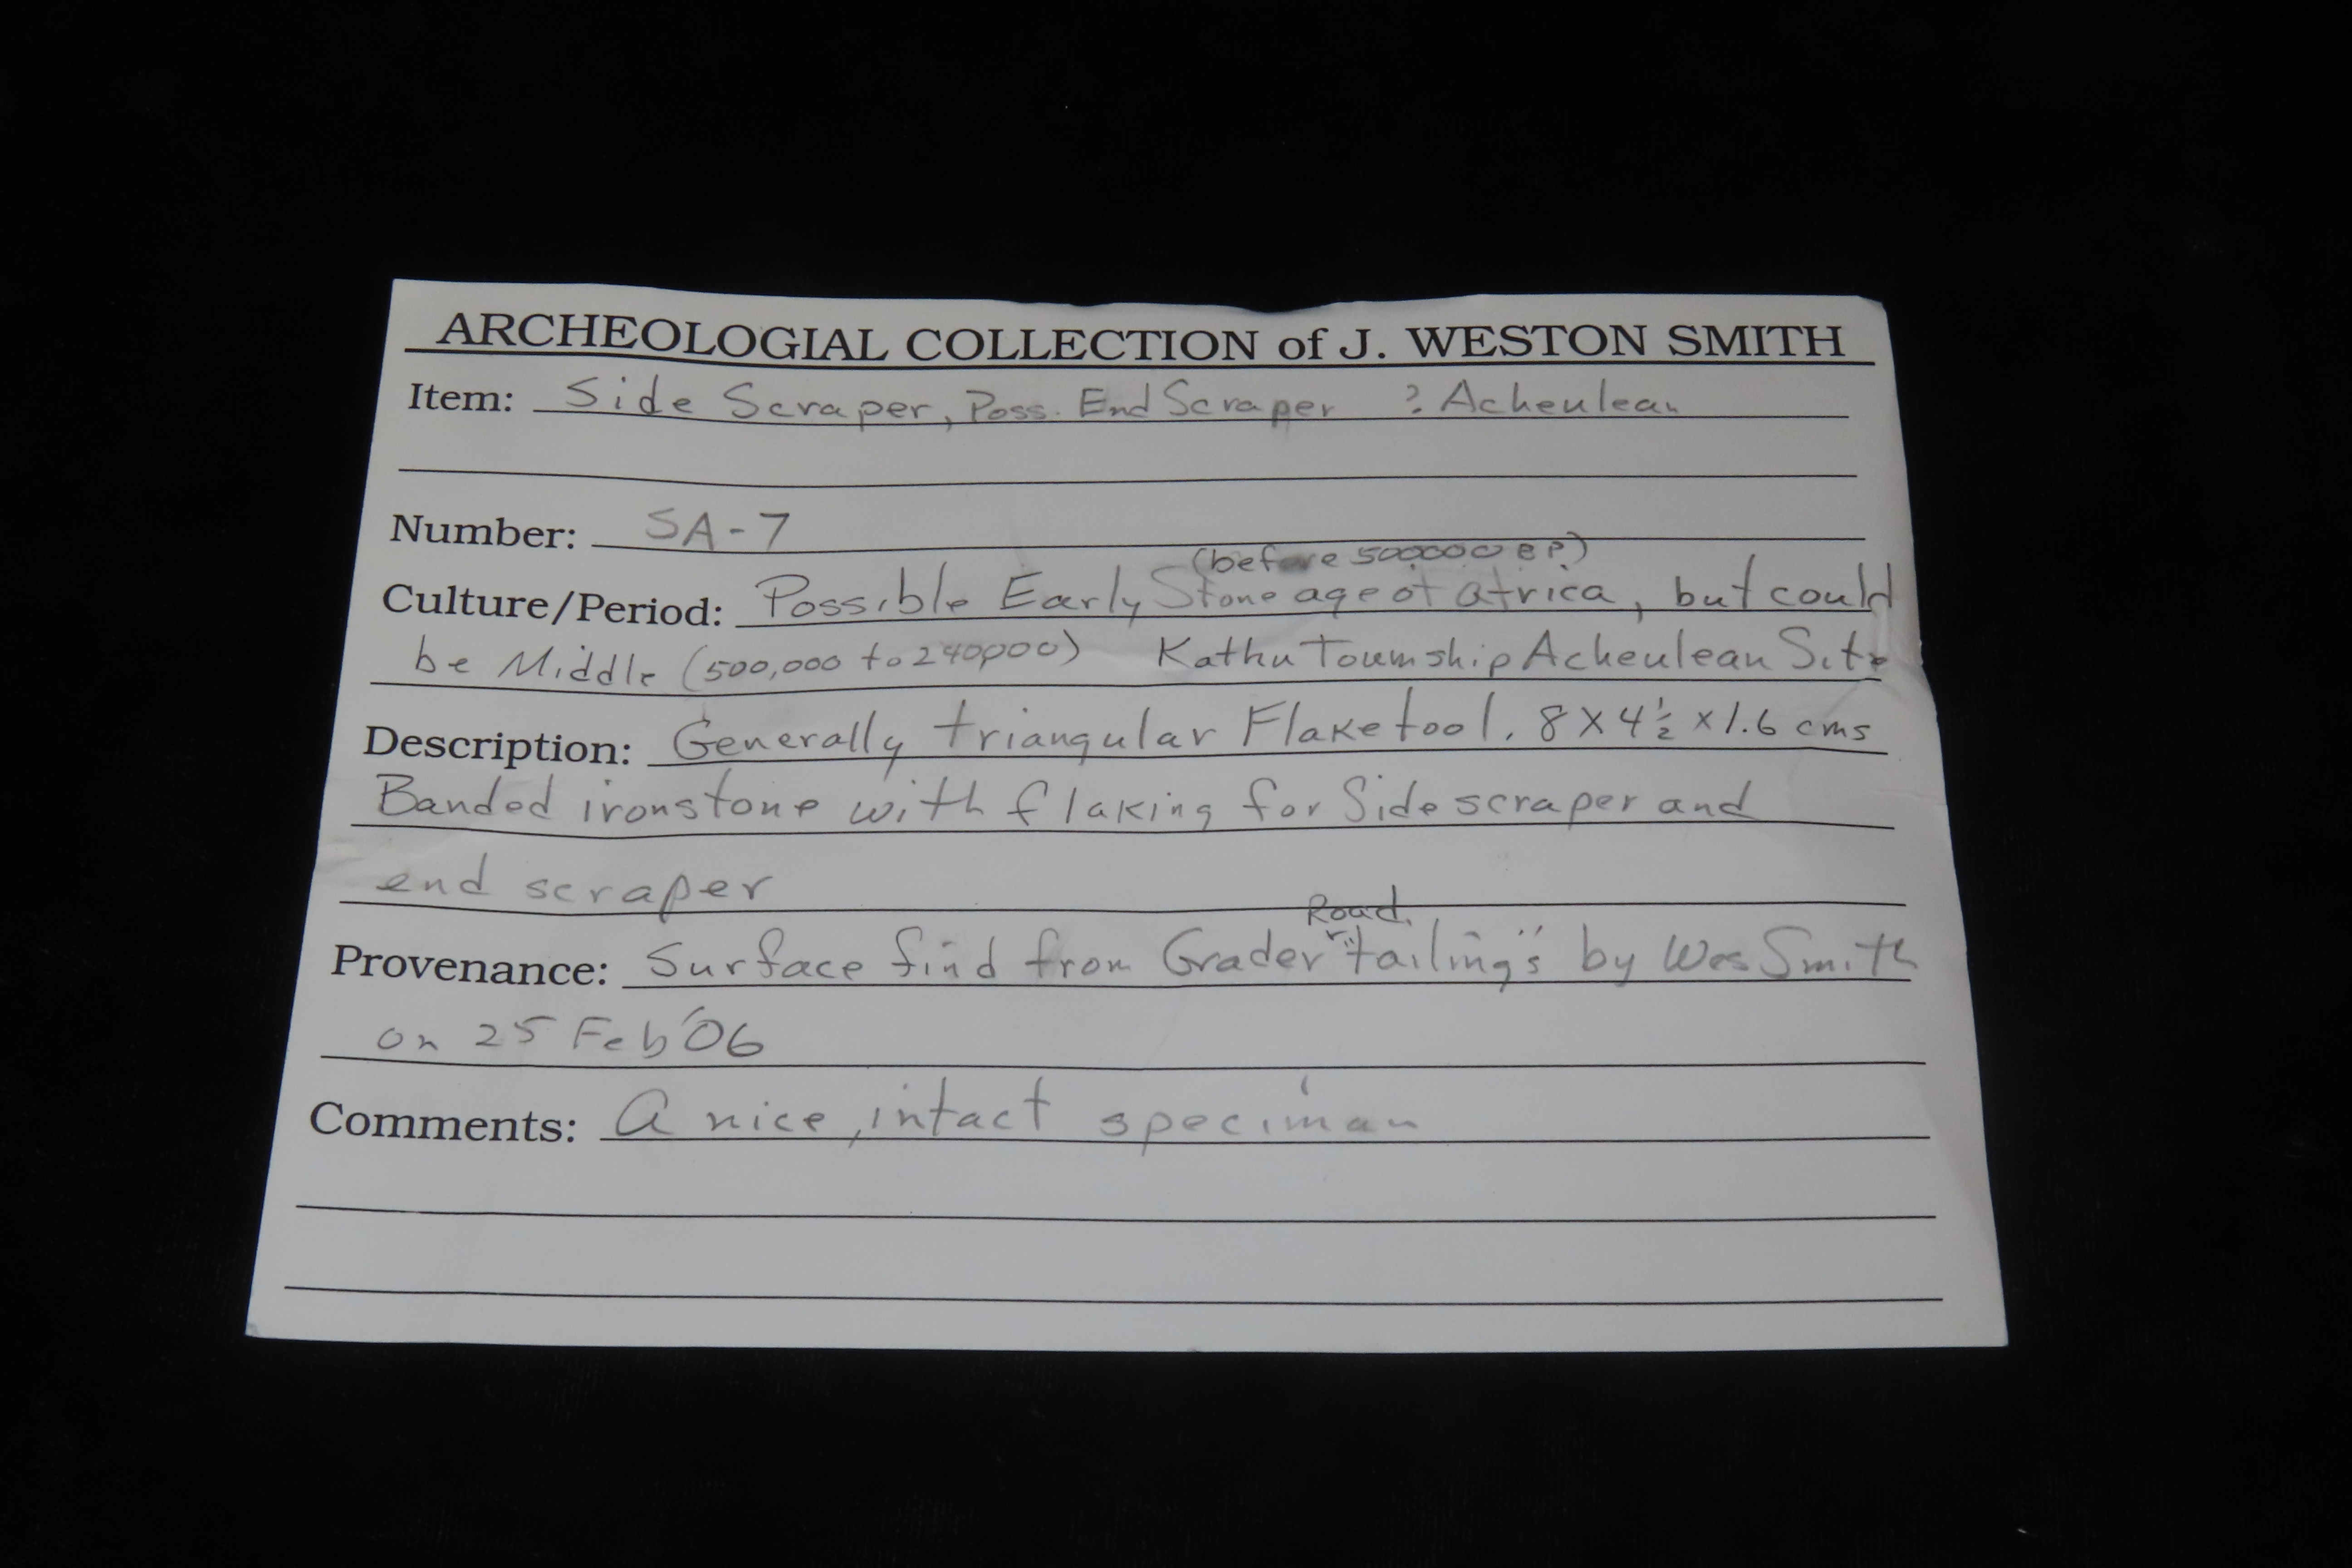 ARCHEOLOGIAL COLLECTION of J. WESTON SMITH
Item: Side Scraper, Poss. End Scraper ? Acheulean
Number: SA-7
(before 500,000 BP)
Culture/Period: Possible Early Stone age of africa, but could
be Middle (500,000 to 240,000) Kathu Township Acheulean Site
Description: Generally triangular Flake tool. 8 X 4 ½ x 1.6 cms
Banded ironstone with flaking for Side scraper and
end scraper
Road
Provenance: Surface find from Grader "tailings" by Wes Smith
on 25 Feb '06
Comments: A nice, intact speciman